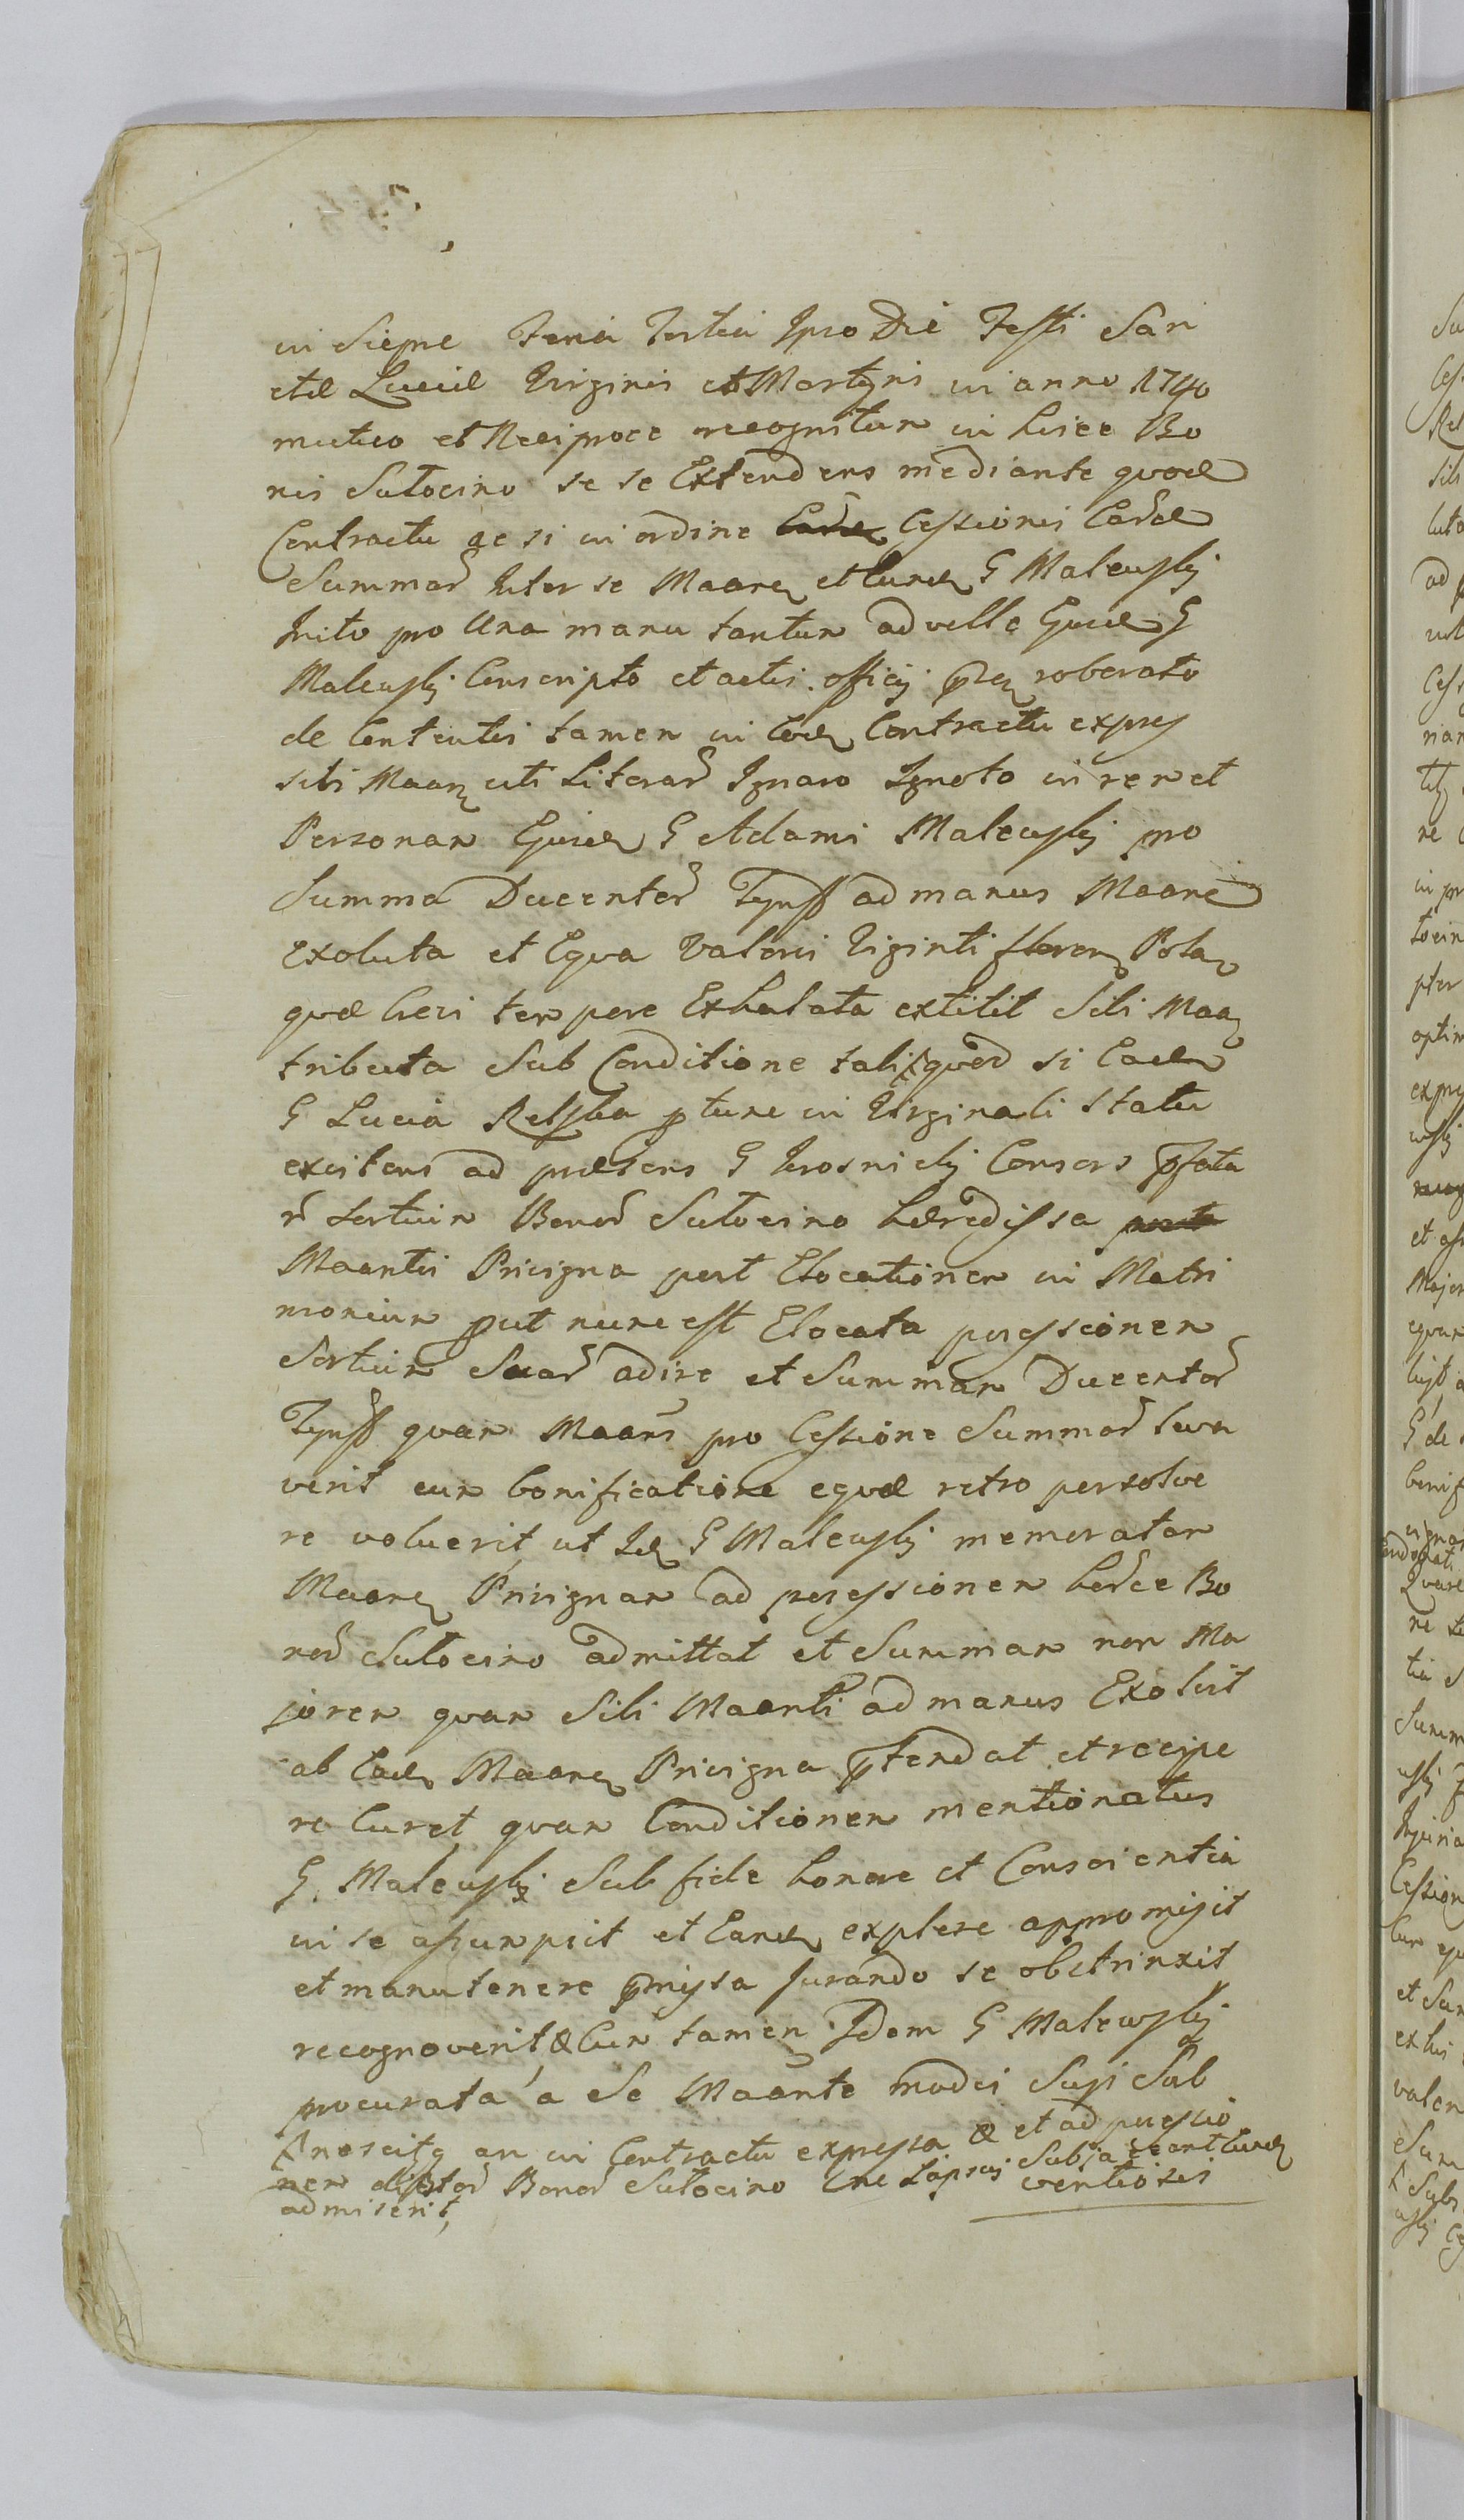 in Siepre Feria Tertia Ipso Die Festi San
ctæ Luciæ Virginis et Martyris in anno 1740
mutuo et Reciproce recognitum in hisce Bo
nis Sutocino se se Extendens mediante quoe
Contractu ac si in ordine Cessionis Earde
Summar Inter se Maane et eund G Malewskj
Inito pro Una manu tantum ad velle Ejusd G
Malewskj Conscripto et actis officij roborato
de Contentis tamen in Eod Contractu expres
sibi Maan uti Literar Ignaro Ignoto in rem et
Personam Ejusd G Adami Malewskj pro
Summa Ducentor Tynff ad manus Maane
exoluta et Equa Valoris Viginti floren Pola
quæ heri tempore Exhalata extitit Sibi Maa
tributa Sub Conditione tali quod si Eade
G Lucia Relska p tunc in Virginali statu
existens ad præsens G Krosnickj Consors pfata
r Sortium Bonor Sutocino hæredissa
Maantis Privigna post Elocationem in Matri
monium put nunc est Elocata possessionem
Sortium Suar adire et Summam Ducentor
Tynff quam Maans pro Cessione Summar leva
verit cum bonificatione equæ retro persolve
re voluerit ut Id G Malewskj memoratam
Maane Privignam ad possessionem harce Bo
nor Sutocino admittat et Summam non Ma
jorem quam Sibi Maanti ad manus Exolvit
ab Ead Maane Privigna ptendat et recipe
re Curet quam Conditionem mentionatus
G. Malewskj Sub fide honore et Conscientia
in se assumpsit et Eand explere appromisit
et manutenere pmissa Jurando se obstrinxit
recognoverit & Cum tamen Idem G Malewskj
procurata a Se Maante modi Suji Sub
nescitq an in Contractu expressa & et ad possessio
nem distor Bonor Sutocino ne Lapsus Subjaceant Eund
admiserit, ventiosis